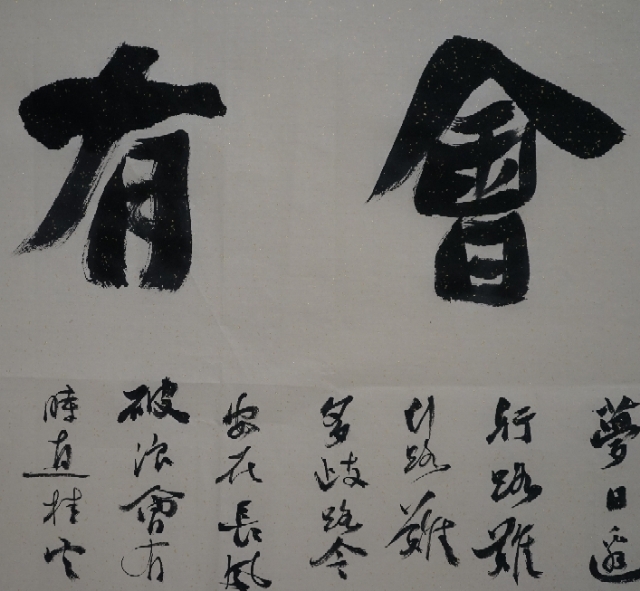 會有
夢日邊
行路難
行路難
多歧路今
安在長風
破浪會有
時直挂雲